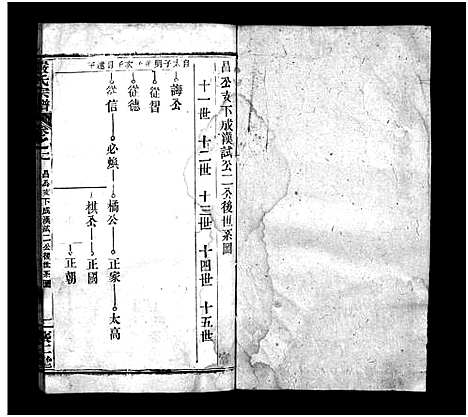 昌公支下成漢試公二公後世系圖
十一世 十二世 十三世 十四世 十五世
誨公
從智
從德
從信 必煥 橘公 正家 太高
棋公 正國
正朝
氏宗譜 卷之二 昌公支下成漢試二公後世系圖